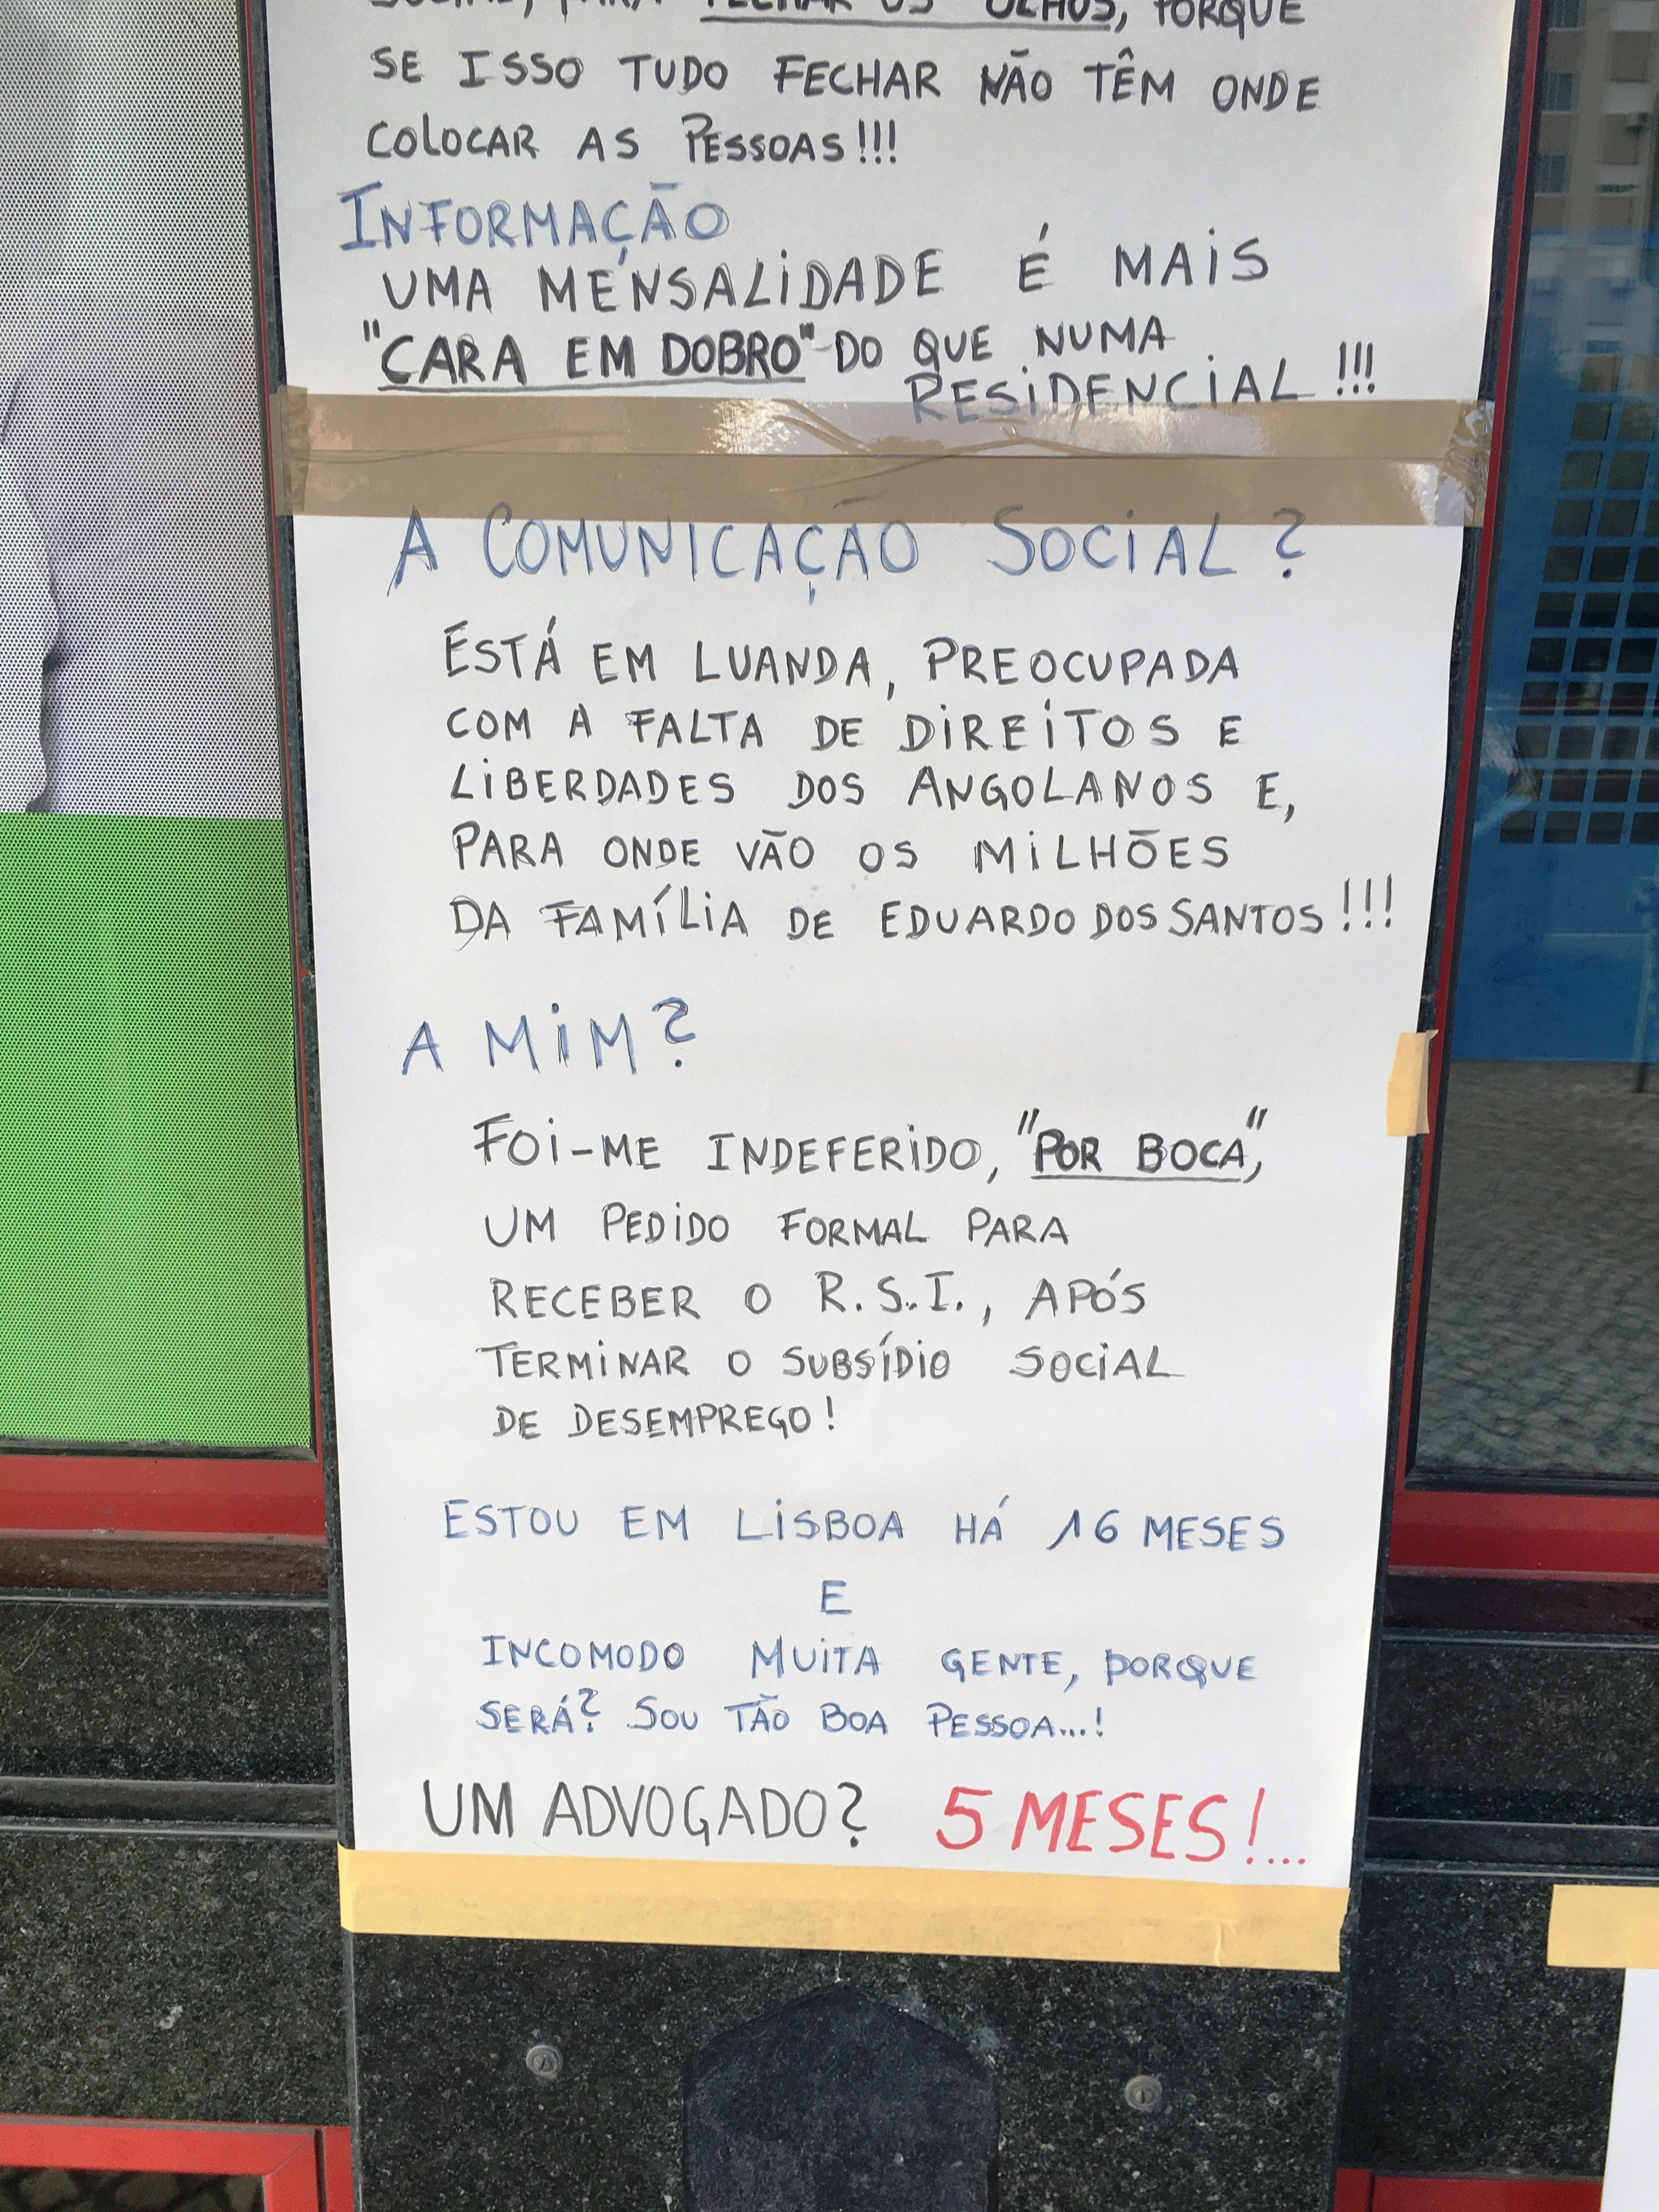 SOCIAL, PARA FECHAR OS OLHOS, PORQUE
SE ISSO TUDO FECHAR NÃO TÊM ONDE
COLOCAR AS PESSOAS!!!
INFORMAÇÃO
UMA MENSALIDADE É MAIS
"CARA EM DOBRO" DO QUE NUMA
RESIDENCIAL!!!
A COMUNICAÇÃO SOCIAL?
ESTÁ EM LUANDA, PREOCUPADA
COM A FALTA DE DIREITOS E
LIBERDADES DOS ANGOLANOS E,
PARA ONDE VÃO OS MILHÕES
DA FAMÍLIA DE EDUARDO DOS SANTOS!!!
A MIM?
FOI-ME INDEFERIDO, "POR BOCA",
UM PEDIDO FORMAL PARA
RECEBER O R.S.I., APÓS
TERMINAR O SUBSÍDIO SOCIAL
DE DESEMPREGO!
ESTOU EM LISBOA HÁ 16 MESES
E
INCOMODO MUITA GENTE, PORQUE
SERÁ? SOU TÃO BOA PESSOA...!
UM ADVOGADO? 5 MESES!....